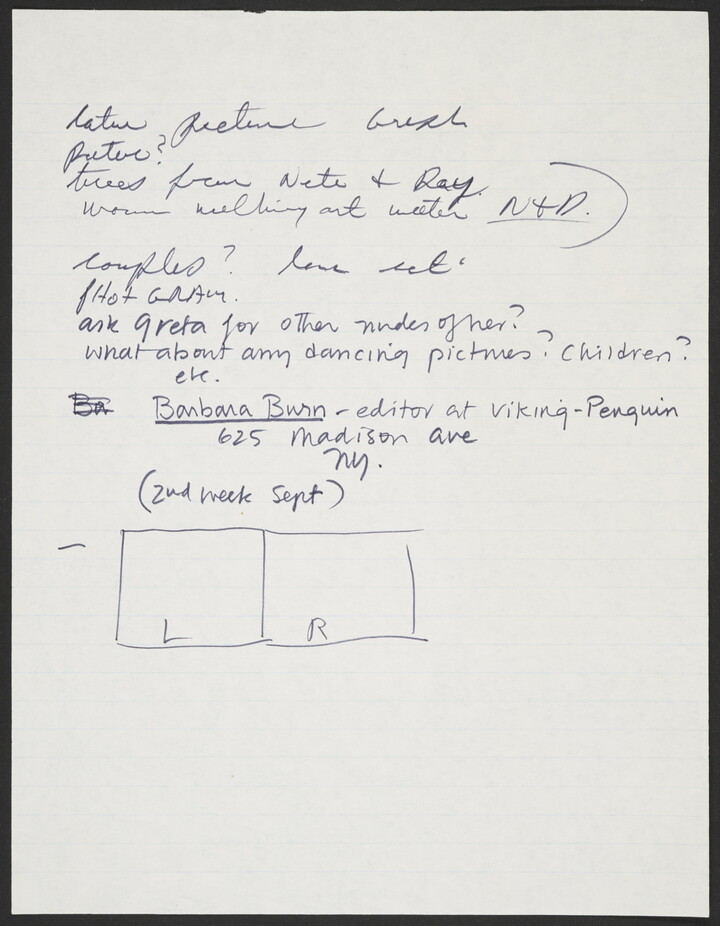 later picture
trees from Nete + Ray.
water N&D.
couples? love
PHOTOGRAM.
ask Greta for other nudes of her?
what about any dancing pictures? Children?
etc.
Ba Barbara Burn - editor at Viking-Penguin
625 Madison Ave
NY.
(2nd week Sept)
L R